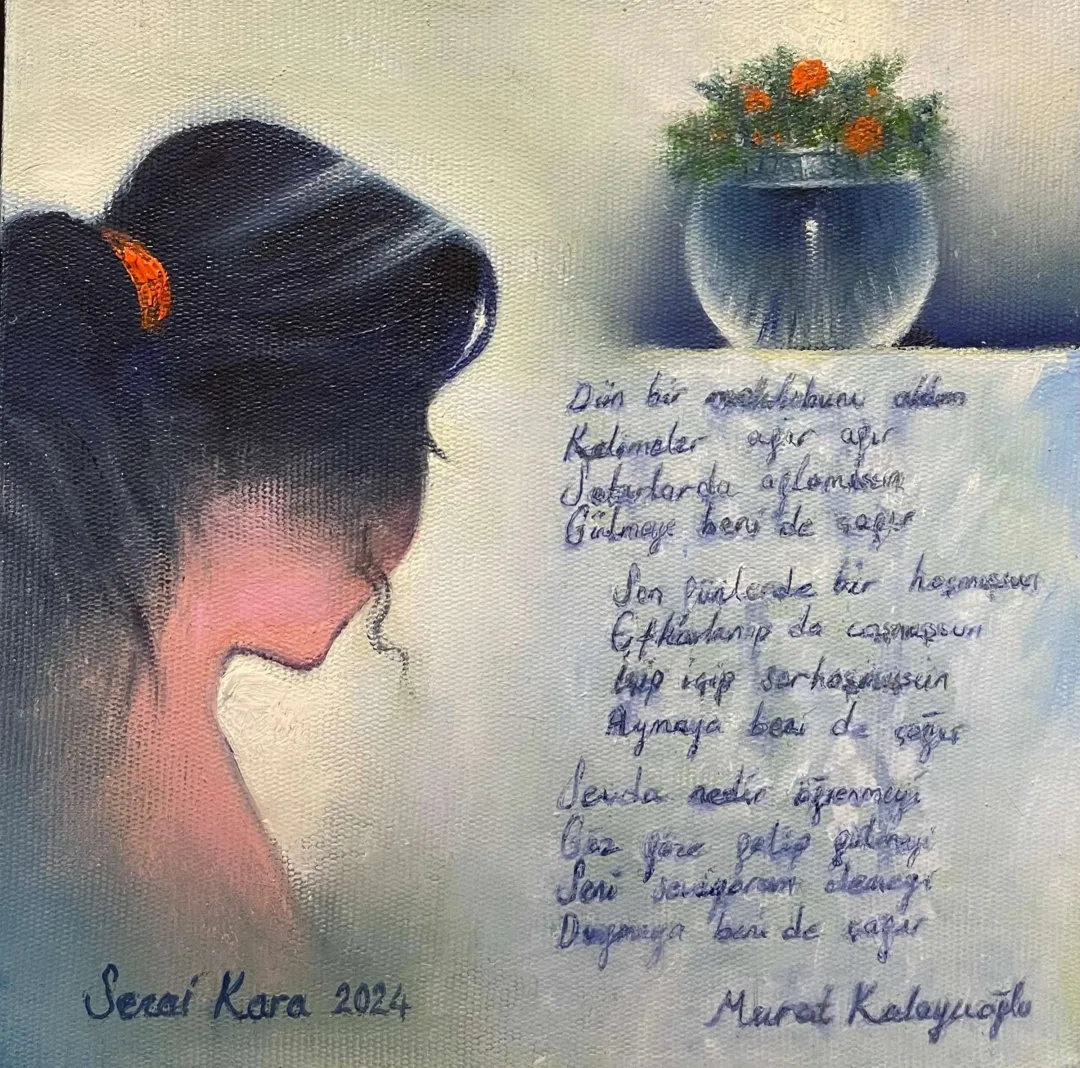 Dün bir mektubunu aldım
Kelimeler ağır ağır
Satırlarda ağlamışsın
Gülmeye beni de çağır
Son günlerde bir hoşmuşsun
Efkârlanıp da coşmuşsun
İçip içip sarhoşmuşsun
Aymaya beni de çağır
Sevda nedir öğrenmeyi
Göz göze gelip gülmeyi
Seni seviyorum demeyi
Duymaya beni de çağır
Sezai Kara 2024
Murat Kalaycıoğlu